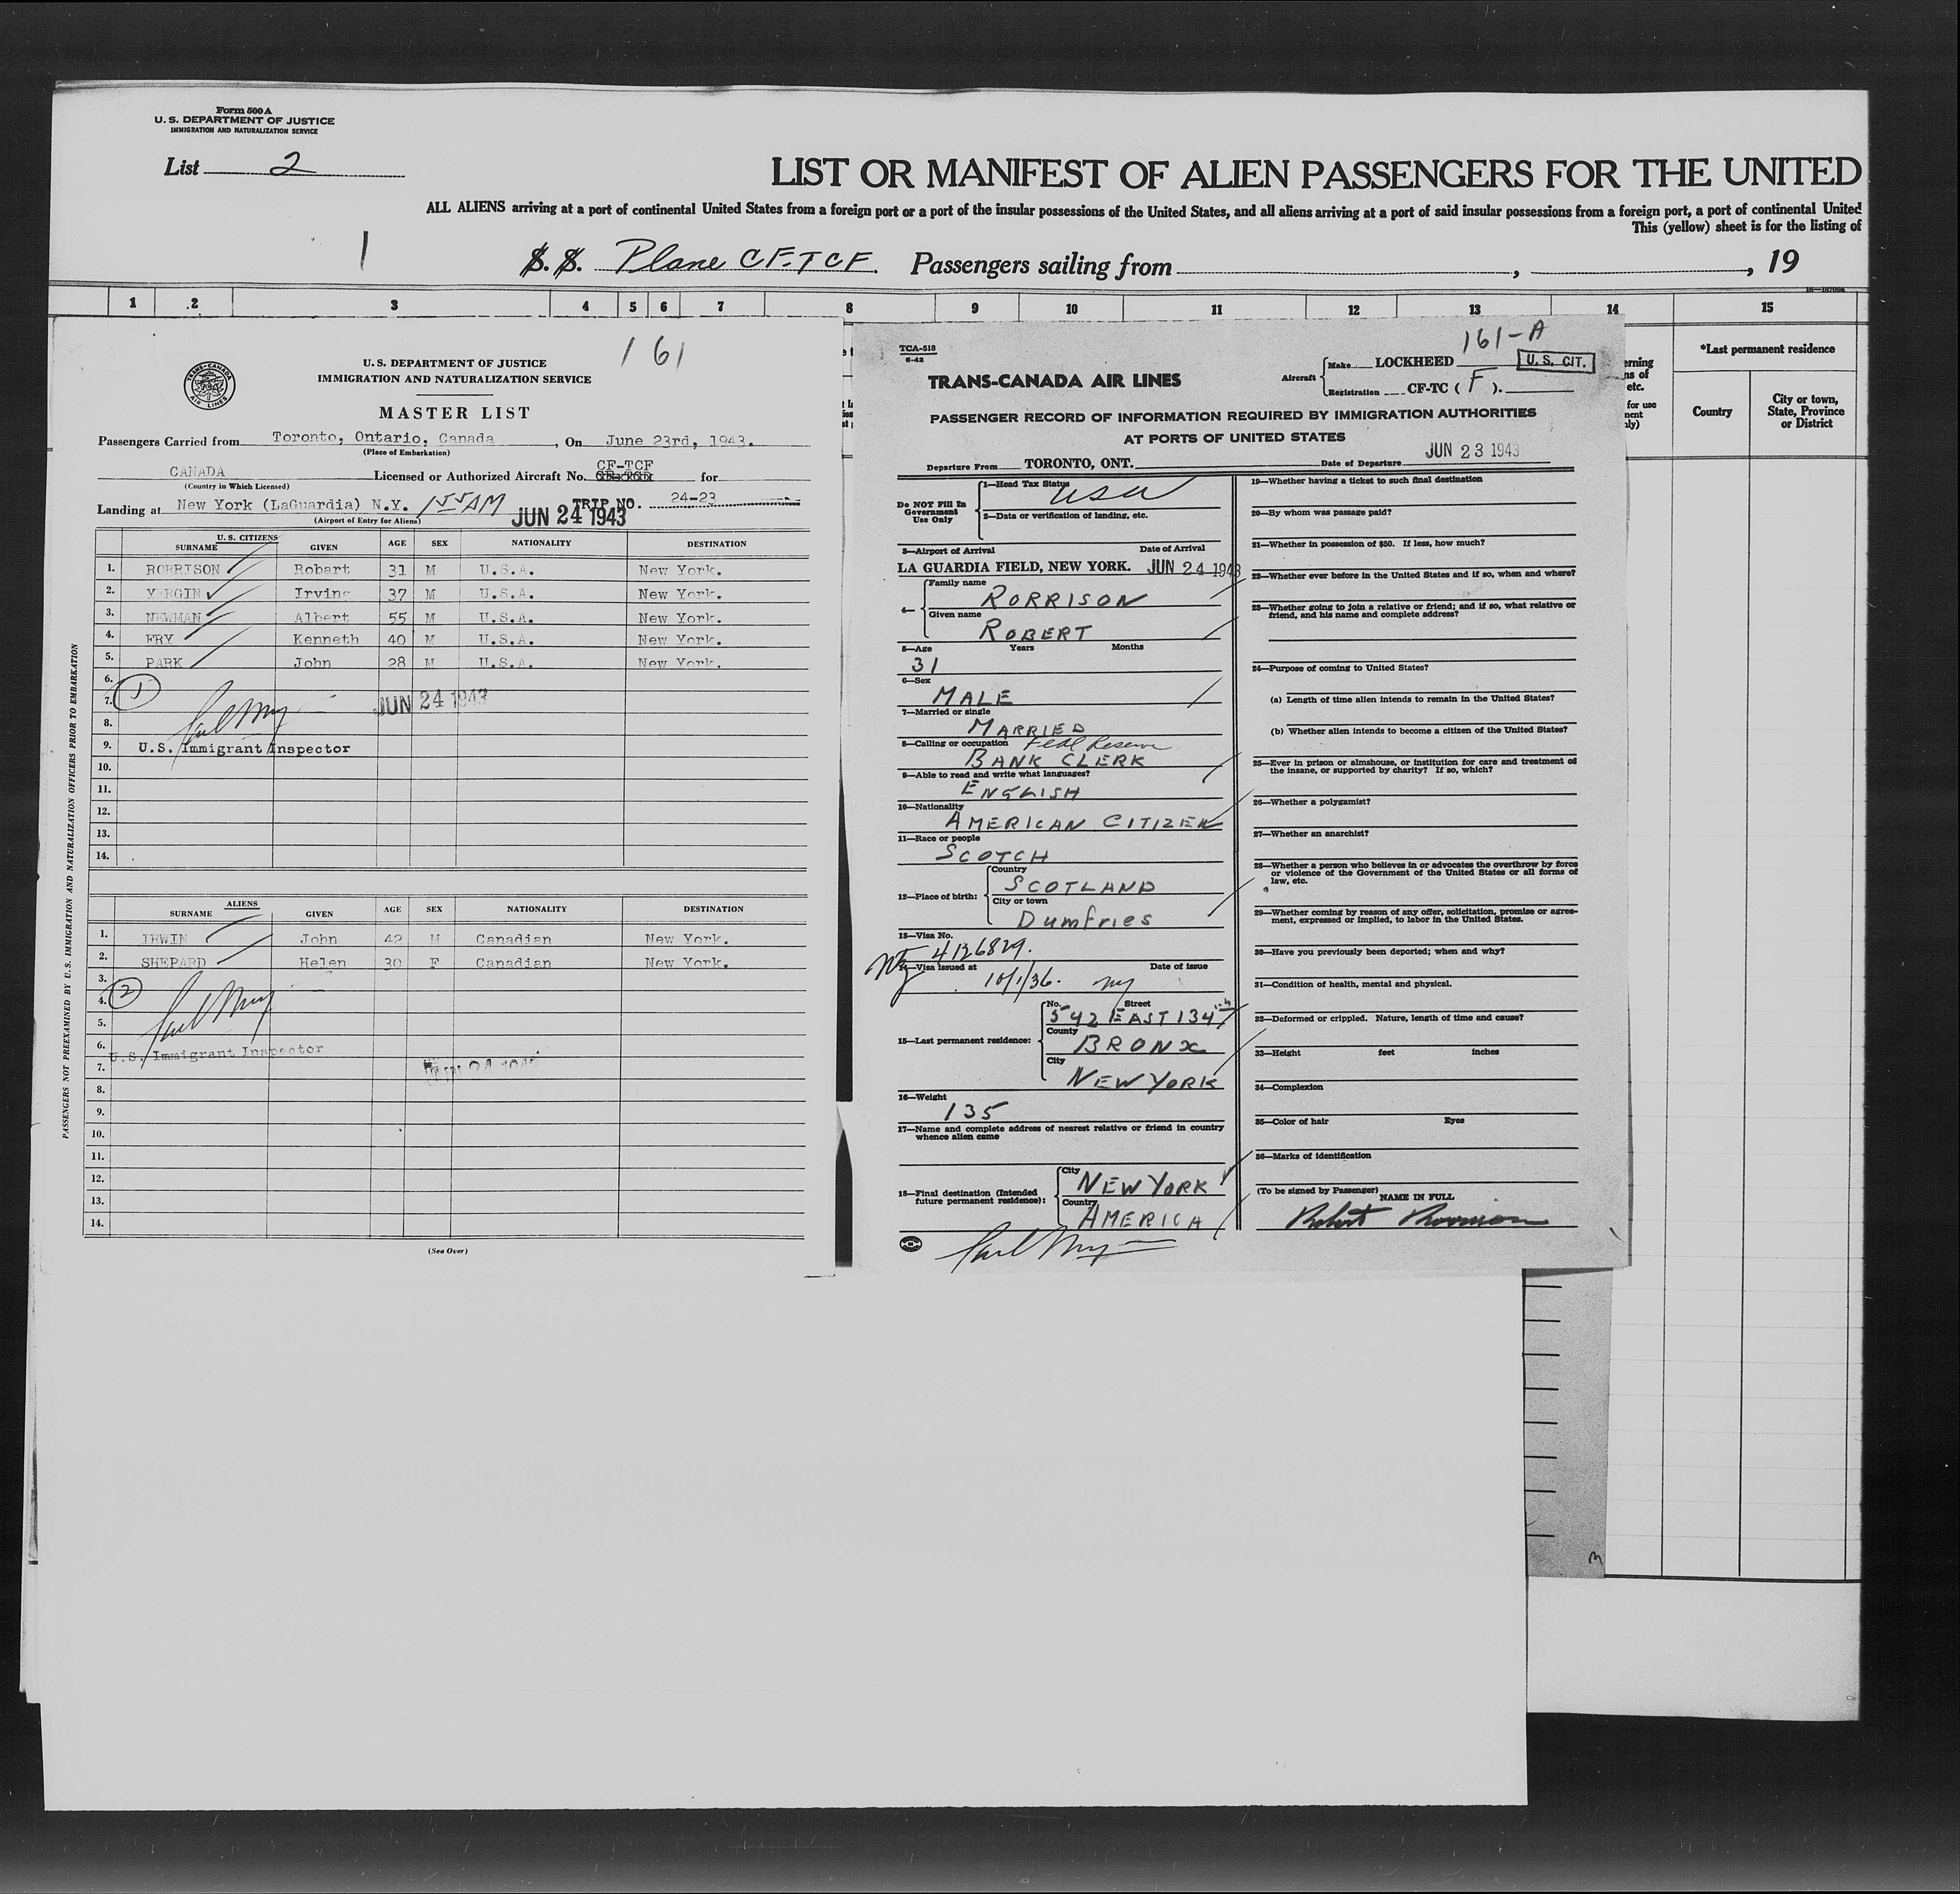 Form 500 A
U. S. DEPARTMENT OF JUSTICE
IMMIGRATION AND NATURALIZATION SERVICE
List 2
LIST OR MANIFEST OF ALIEN PASSENGERS FOR THE UNITED
ALL ALIENS arriving at a port of continental United States from a foreign port or a port of the insular possessions of the United States, and all aliens arriving at a port of said insular possessions from a foreign port, a port of continental United
This (yellow) sheet is for the listing of
1
S. S. Plane CF-TCF. Passengers sailing from , , 19
1 2 3 4 5 6 7 8 9 10 11 12 13 14 15
*Last permanent residence
Country
City or town, State, Province or District
161
TRANS-CANADA AIR LINES
U.S. DEPARTMENT OF JUSTICE
IMMIGRATION AND NATURALIZATION SERVICE
MASTER LIST
Passengers Carried from Toronto, Ontario, Canada, On June 23rd, 1943.
(Place of Embarkation)
CANADA Licensed or Authorized Aircraft No. CF-TCF for
(Country in Which Licensed)
Landing at New York (LaGuardia) N.Y. 155AM TRIP NO. 24-23
(Airport of Entry for Aliens) JUN 24 1943
U.S. CITIZENS
SURNAME GIVEN AGE SEX NATIONALITY DESTINATION
1. RORRISON Robert 31 M U.S.A. New York.
2. Irving 37 M U.S.A. New York.
3. NEWMAN Albert 55 M U.S.A. New York.
4. FRY Kenneth 40 M U.S.A. New York.
5. PARK John 28 M U.S.A. New York.
6.
7. 1 JUN 24 1943
8.
9. U.S. Immigrant Inspector
10.
11.
12.
13.
14.
ALIENS
SURNAME GIVEN AGE SEX NATIONALITY DESTINATION
1. IRWIN John 42 M Canadian New York.
2. SHEPARD Helen 30 F Canadian New York.
3.
4. 2
5.
6. U.S. Immigrant Inspector
7.
8.
9.
10.
11.
12.
13.
14.
(See Over)
PASSENGERS NOT PREEXAMINED BY U.S. IMMIGRATION AND NATURALIZATION OFFICERS PRIOR TO EMBARKATION
TCA-518
6-42
161-A
TRANS-CANADA AIR LINES
Aircraft Make LOCKHEED U.S. CIT.
Registration CF-TC ( F ).
PASSENGER RECORD OF INFORMATION REQUIRED BY IMMIGRATION AUTHORITIES
AT PORTS OF UNITED STATES
Departure From TORONTO, ONT. Date of Departure JUN 23 1943
Do NOT Fill In Government Use Only
1—Head Tax Status USA
2—Data or verification of landing, etc.
3—Airport of Arrival Date of Arrival
LA GUARDIA FIELD, NEW YORK. JUN 24 1943
4— Family name
RORRISON
Given name
ROBERT
5—Age Years Months
31
6—Sex
MALE
7—Married or single
MARRIED
8—Calling or occupation Fedl Reserve
BANK CLERK
9—Able to read and write what languages?
ENGLISH
10—Nationality
AMERICAN CITIZEN
11—Race or people
SCOTCH
12—Place of birth: Country
SCOTLAND
City or town
Dumfries
13—Visa No.
4126829.
14—Visa issued at Date of issue
10/1/36. ny
15—Last permanent residence: No. Street
542 EAST 134th
County
BRONX
City
NEW YORK
16—Weight
135
17—Name and complete address of nearest relative or friend in country
whence alien came
18—Final destination (Intended future permanent residence): City
NEW YORK
Country
AMERICA
19—Whether having a ticket to such final destination
20—By whom was passage paid?
21—Whether in possession of $50. If less, how much?
22—Whether ever before in the United States and if so, when and where?
23—Whether going to join a relative or friend; and if so, what relative or
friend, and his name and complete address?
24—Purpose of coming to United States?
(a) Length of time alien intends to remain in the United States?
(b) Whether alien intends to become a citizen of the United States?
25—Ever in prison or almshouse, or institution for care and treatment of
the insane, or supported by charity? If so, which?
26—Whether a polygamist?
27—Whether an anarchist?
28—Whether a person who believes in or advocates the overthrow by force
or violence of the Government of the United States or all forms of
law, etc.
29—Whether coming by reason of any offer, solicitation, promise or agree-
ment, expressed or implied, to labor in the United States.
30—Have you previously been deported; when and why?
31—Condition of health, mental and physical.
32—Deformed or crippled. Nature, length of time and cause?
33—Height feet inches
34—Complexion
35—Color of hair Eyes
36—Marks of identification
(To be signed by Passenger) NAME IN FULL
Robert Rorrison